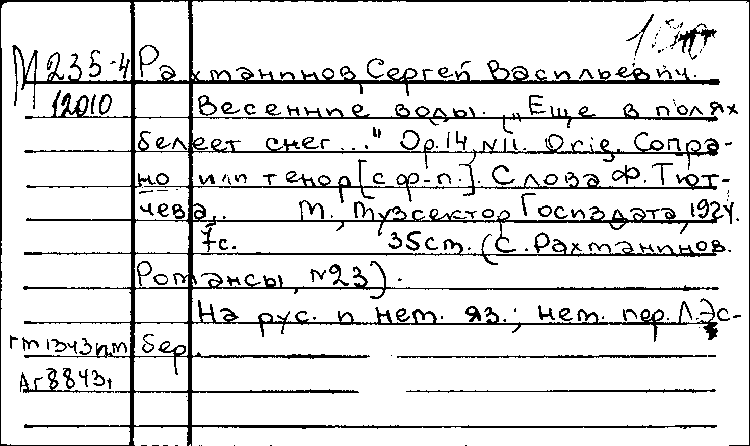 М 235-4 Рахманинов, Сергей Васильевич.
12010 Весенние воды. "Еще в полях
белеет снег..." Op.14, N11. Orig. Сопра-
но или тенор [с ф-п.]. Слова Ф. Тют-
чева. М., Музсектор Госиздата, 1924.
7с. 35см. (С. Рахманинов.
Романсы, №23).
На рус. и нем. яз.; нем. пер. Л. Эс-
бер.